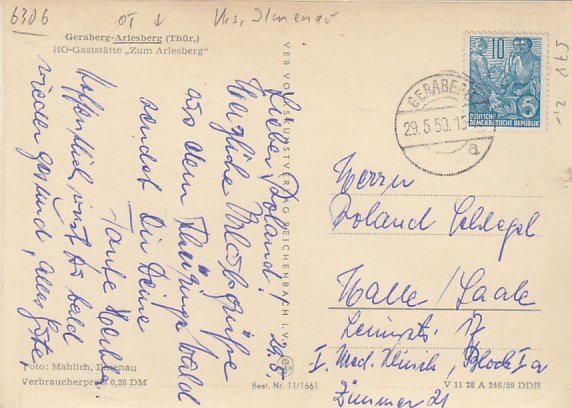 6306
OT ↓
Krs. Ilmenau
578
2,-
Geraberg-Arlesberg (Thür.)
HO-Gaststätte "Zum Arlesberg"
29.5.
Lieber Roland!
Herzliche Urlaubsgrüße
aus dem Thüringer Wald
sendet Dir Deine
Tante Martha.
Hoffentlich wirst Du bald
wieder gesund, alles Gute,
VEB VOLKSKUNSTVERLAG REICHENBACH i. V.
10
5
DEUTSCHE
DEMOKRATISCHE REPUBLIK
GERABERG
29.5.60.15
a
Herrn
Roland Schlegel
Halle/Saale
Leninstr. 17
I. Med. Klinik, Block I a
Zimmer 21
Foto: Mahlich, Ilmenau
Verbraucherpreis 0,20 DM
Best. Nr. 11/1661
V 11 28 A 246/59 DDR